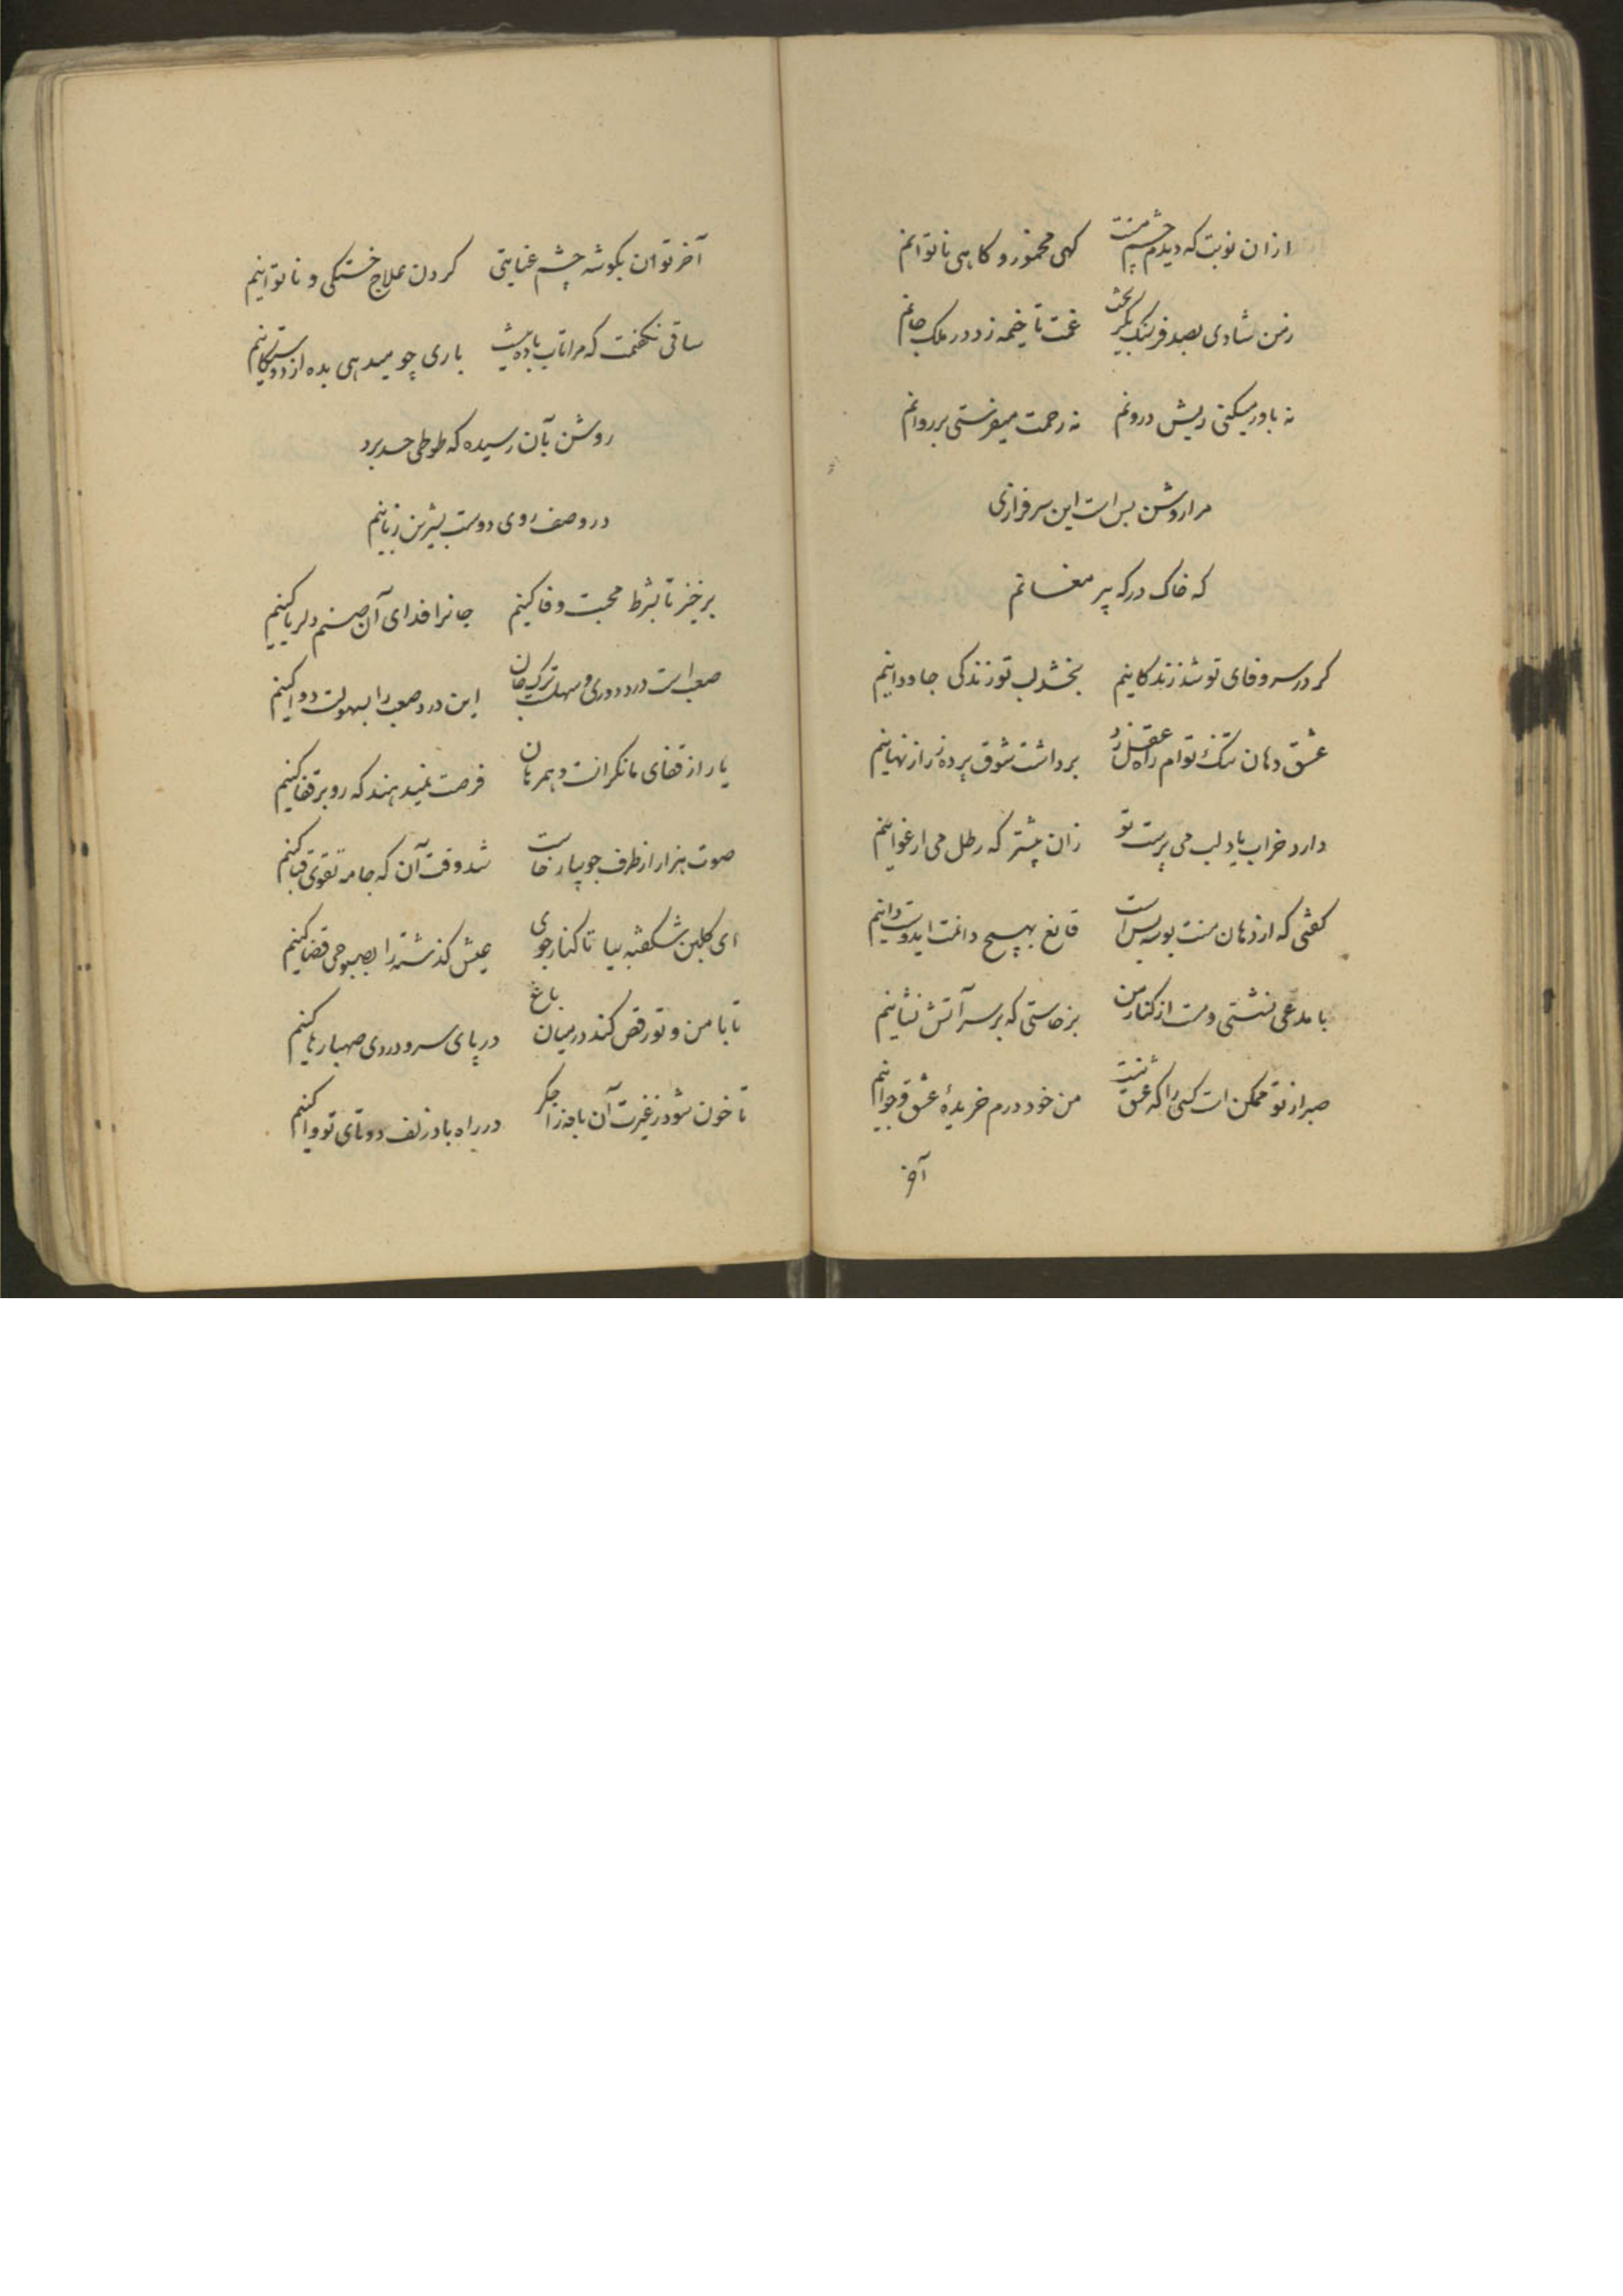 ازان نوبت که دیدم چشم مستت کهی مخمور و کاهی ناتوانم
زمن شادی بصد فرسنک بگریخت غمت تا خیمه زد در ملک جانم
نه باور میکنی ریش درونم نه رحمت میفرستی بر روانم
مرا روشن بس است این سرفرازی
که خاک درکه پیر مغانم
کر در سر وفای تو شد زندکانیم بخشد لب تو زندکی جاودانیم
عشق دهان تنک توام راه عقل زد برداشت شوق پرده ز راز نهانیم
دارد خراب یاد لب می پرست تو زان پیشتر که رطل می ارغوانیم
کفتی که از دهان منت بوسه بس است قانع بهیچ داشت ایدوست دانیم
با مدعی نشستی و مست از کنار من برخاستی که بر سر آتش نشانیم
صبر از تو ممکن است کسی را که عشق نیست من خود درم خریدهٔ عشق و جوانیم
آخر
آخر توان بکوشه چشم عنایتی کردن علاج خستکی و ناتوانیم
ساقی نکفتمت که مرا تاب باده نیست باری چو میدهی بده از دوستکانیم
روشن بآن رسیده که طوطی حسد برد
در وصف روی دوست بشیرین زبانیم
برخیز تا بشرط محبت وفا کنیم جانرا فدای آن صنم دلربا کنیم
صعب است درد دوری و سهلست ترک جان این درد صعب را بسهولت دوا کنیم
یار از قفای ما نکرانست و همرهان فرصت نمیدهند که رو بر قفا کنیم
صوت هزار از طرف جویبار خاست شد وقت آن که جامه تقوی قبا کنیم
ای کلبن شکفته بیا تا کنار جوی عیش کذشته را بصبوحی قضا کنیم
تا با من و تو رقص کند در میان باغ در پای سرو دردی صهبا رها کنیم
تا خون شود ز غیرت آن نافه را جکر در راه باد زلف دوتای تو وا کنیم